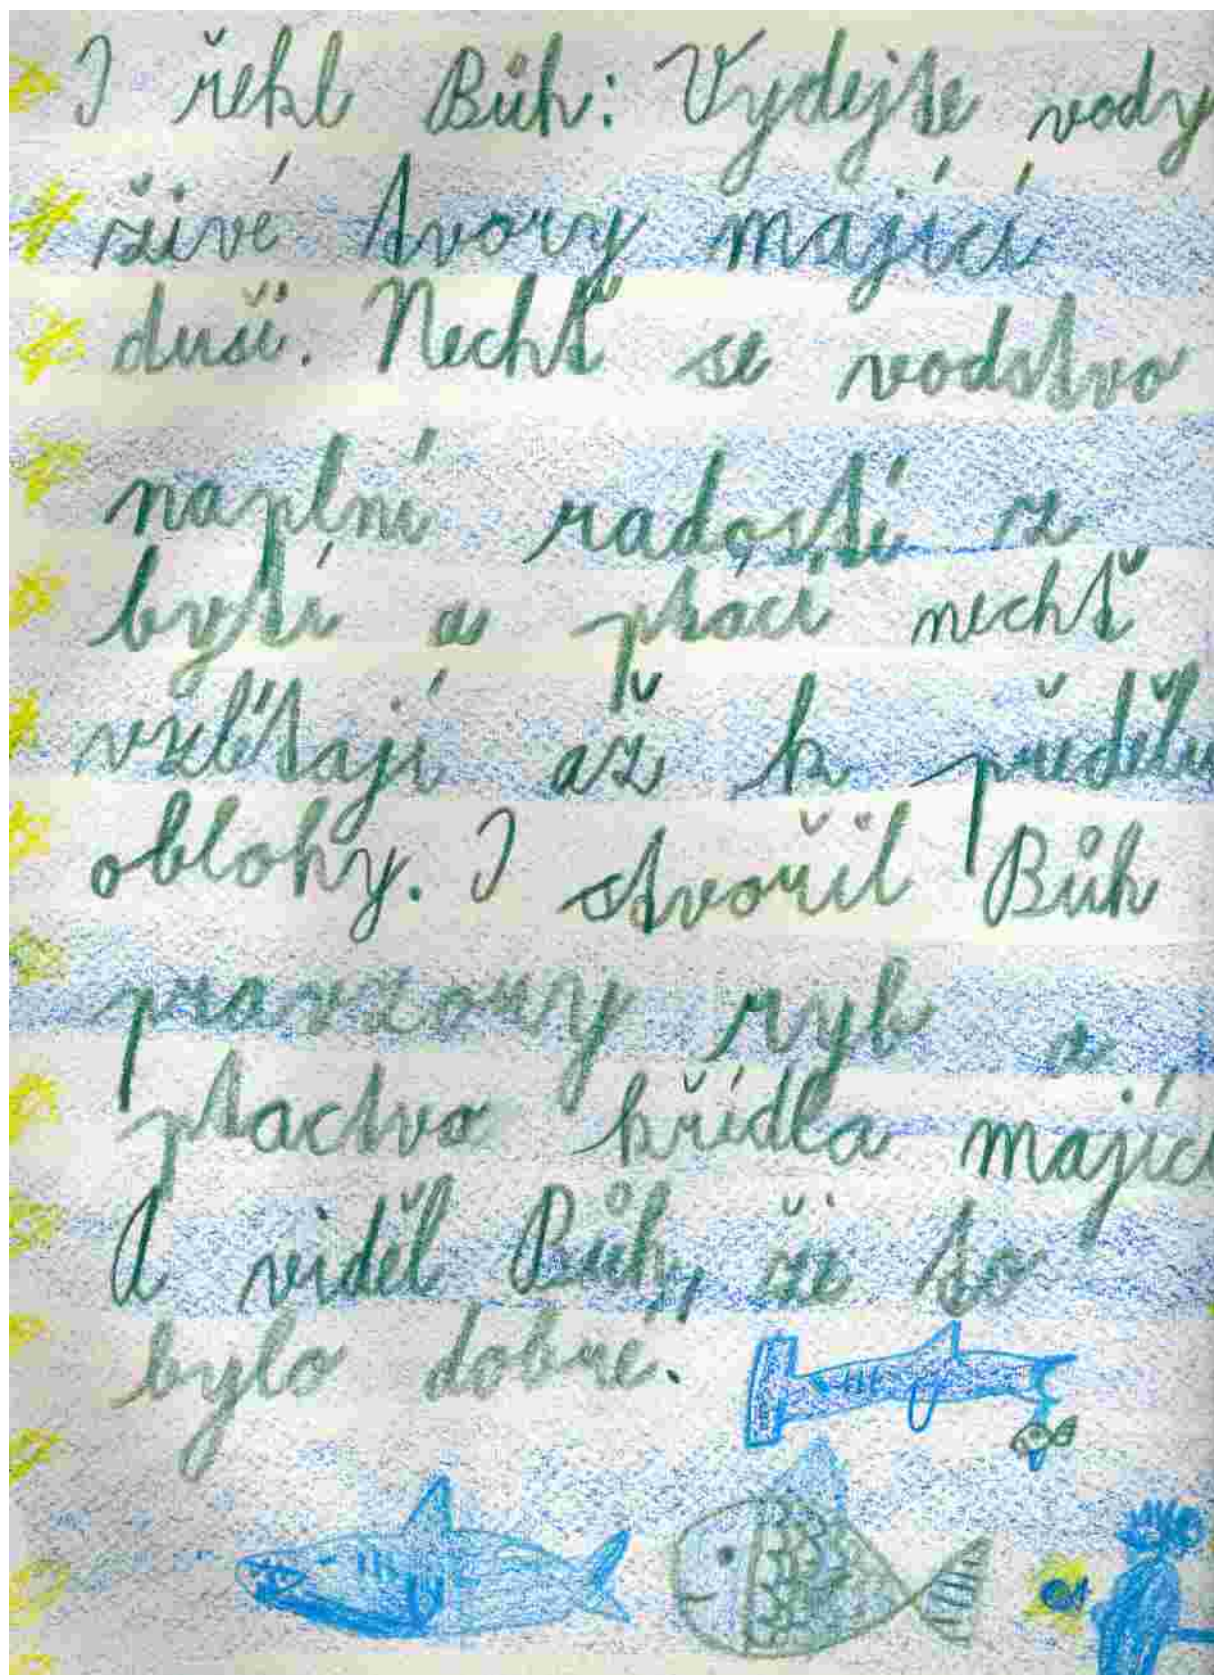 I řekl Bůh: Vydejte vody
živé tvory mající
duši. Nechť se vodstvo
naplní radostí z
bytí a ptáci nechť
vzlétají až k předělu
oblohy. I stvořil Bůh
pravzory ryb a
ptactvo křídla mající
A viděl Bůh, že to
bylo dobré.